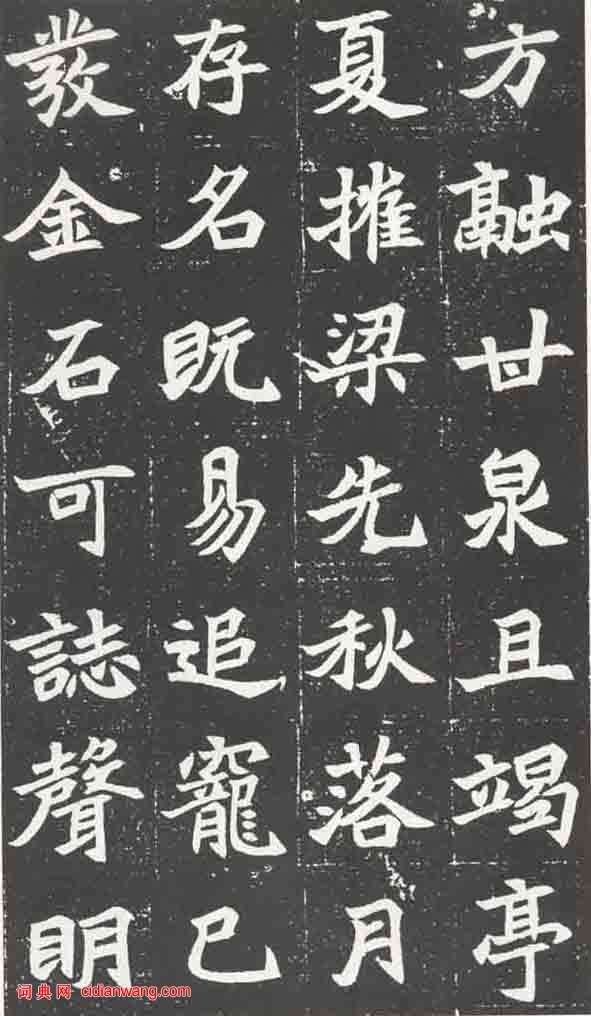 方融甘泉且竭亭
夏摧梁先秋落月
存名既易追寵已
發金石可誌聲明
词典网 cidianwang.com